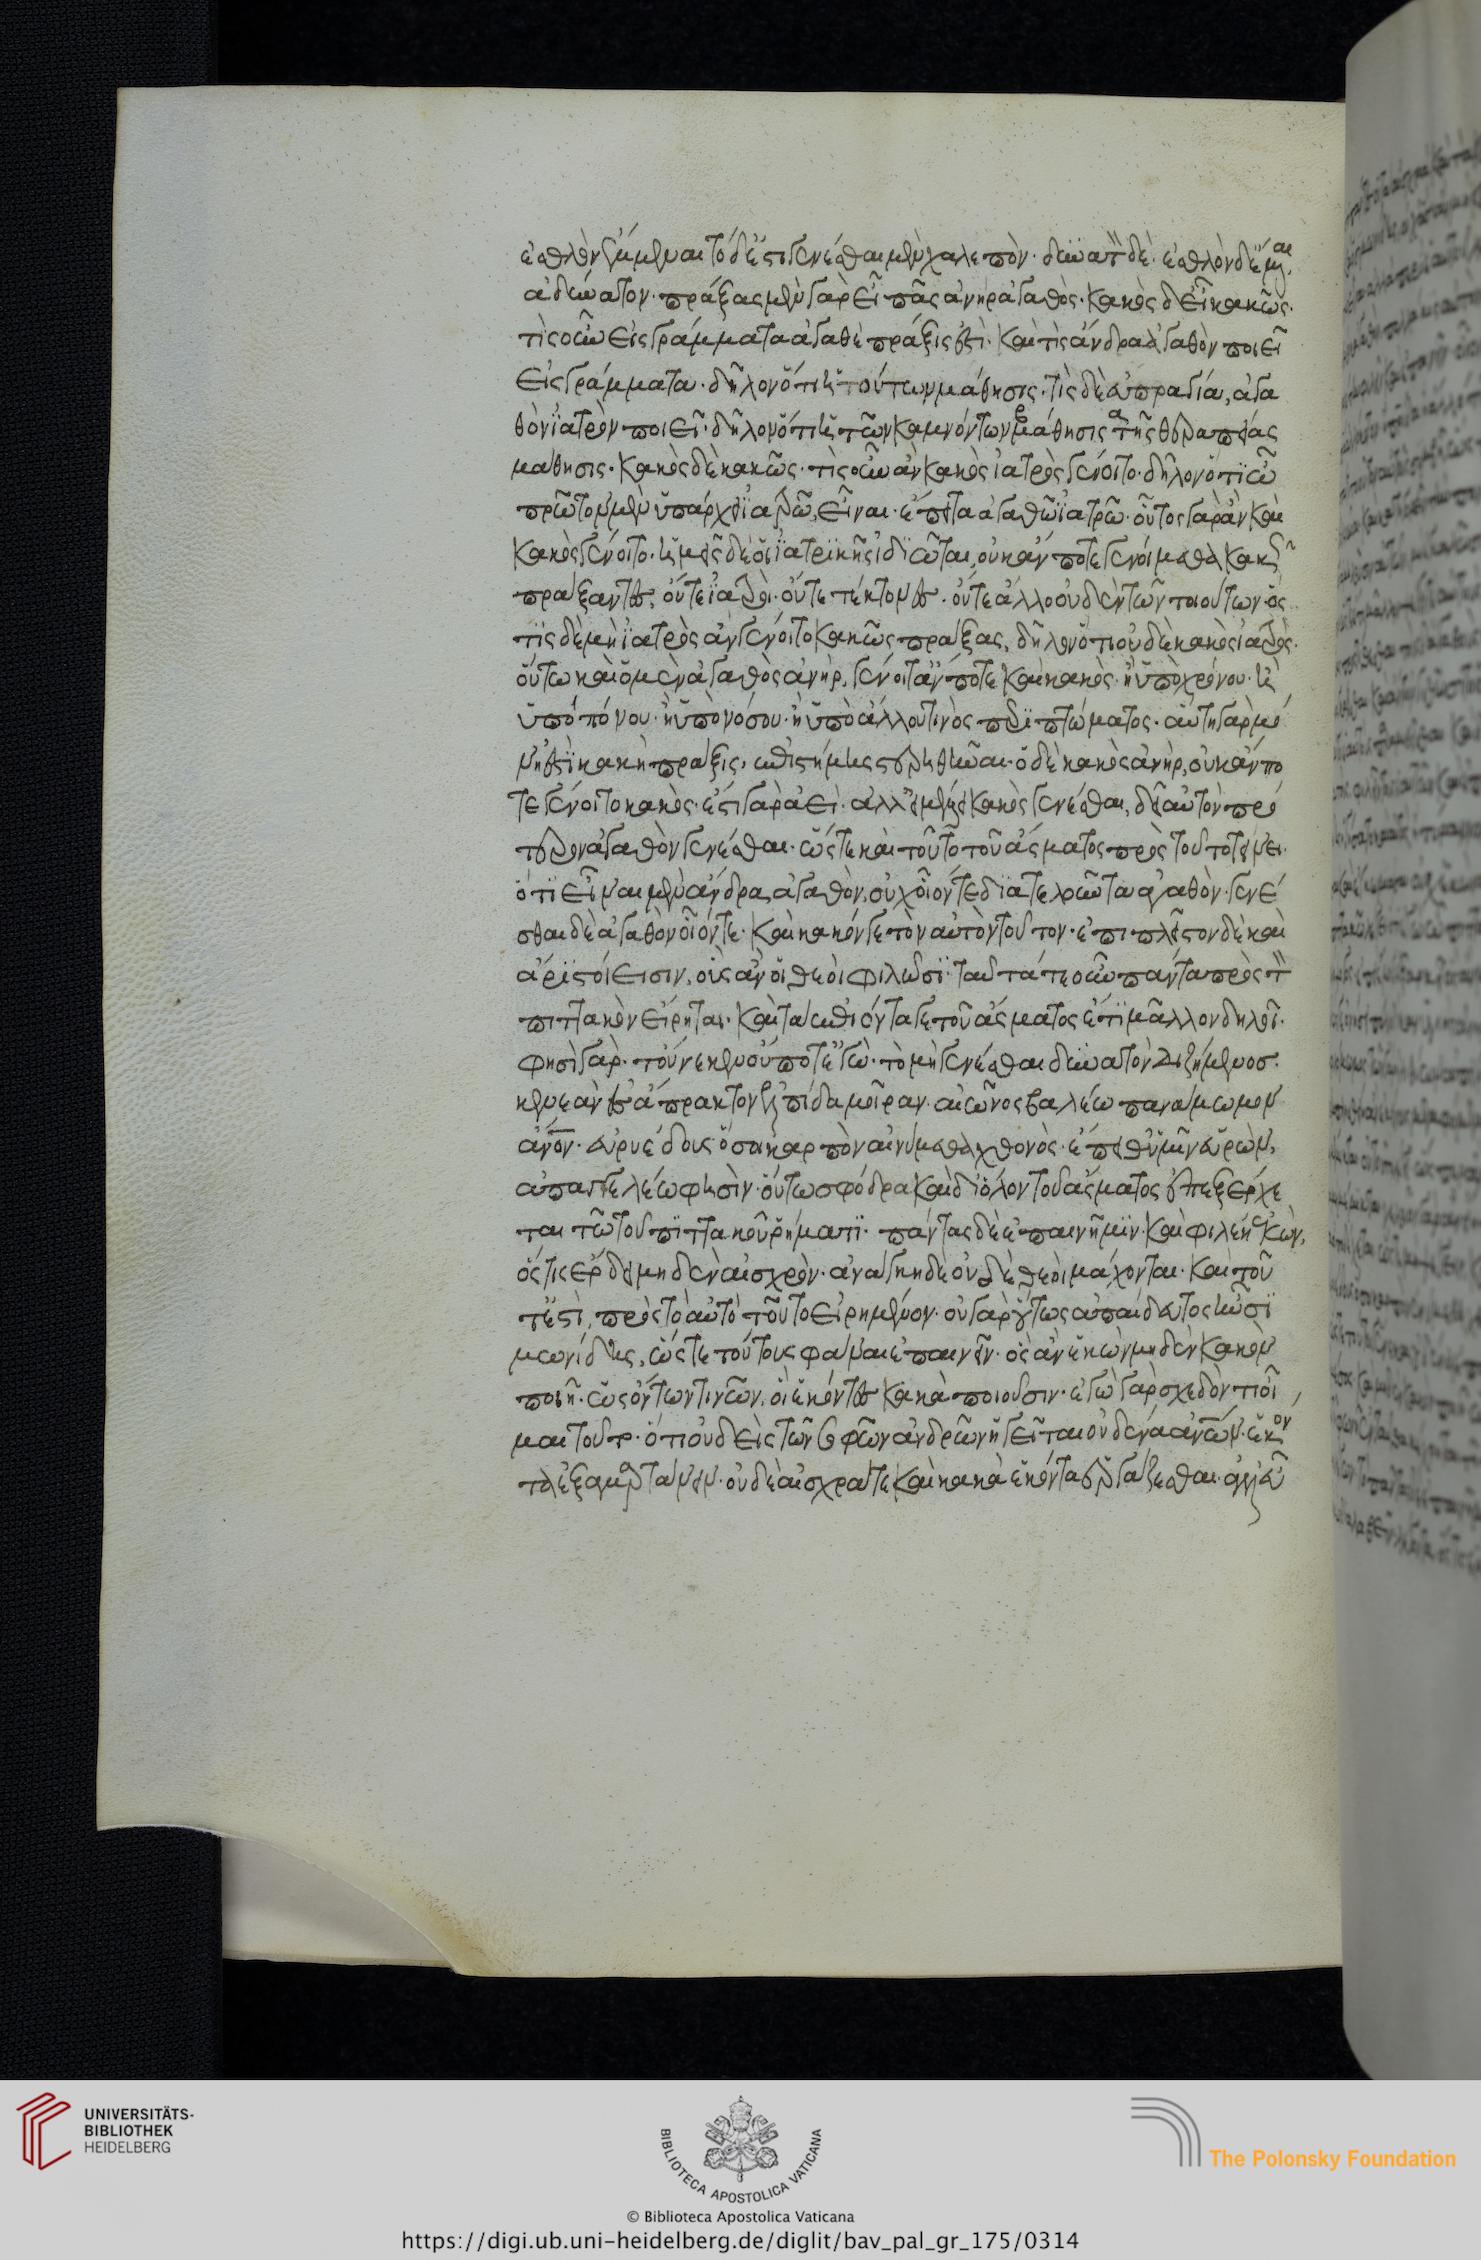 ἐσθλὸν ἔμμεναι τὸ δέ ἐστι γενέσθαι μὲν χαλεπὸν· δυνατὸν δὲ· ἐσθλὸν δ' ἔμμεναι
ἀδύνατον· πράξας μὲν γὰρ εὖ πᾶς ἀνὴρ ἀγαθὸς· κακὸς δ' εἰ κακῶς·
τὶς οὖν εἰς γράμματα ἀγαθὴ πράξις ἐστὶ· καὶ τὶς ἄνδρα ἀγαθὸν ποιεῖ
εἰς γράμματα· δῆλον ὅτι ἡ τούτων μάθησις· τὶς δὲ εὐπραγία, ἀγα
θὸν ἰατρὸν ποιεῖ· δῆλον ὅτι ἡ τῶν καμνόντων μάθησις τῆς θεραπείας
μάθησις· κακὸς δὲ κακῶς· τὶς οὖν ἂν κακὸς ἰατρὸς γένοιτο· δῆλον ὅτι ᾧ
πρῶτον μὲν ὑπάρχει ἰατρῷ, εἶναι· ἔπειτα ἀγαθῷ ἰατρῷ· οὗτος γὰρ ἂν καὶ
κακὸς γένοιτο· ἡμεῖς δὲ οἱ ἰατρικῆς ἰδιῶται, οὐκ ἄν ποτε γενοίμεθα κακῶς
πράξαντες, οὔτε ἰατροὶ· οὔτε τέκτονες· οὔτε ἄλλο οὐδὲν τῶν τοιούτων· ὅς
τις δὲ μὴ ἰατρὸς ἂν γένοιτο κακῶς πράξας, δῆλον ὅτι οὐδὲ κακὸς ἰατρὸς·
οὕτω καὶ ὁ μὲν ἀγαθὸς ἀνὴρ, γένοιτ' ἄν ποτε καὶ κακὸς· ἢ ὑπὸ χρόνου· ἢ
ὑπὸ πόνου· ἢ ὑπὸ νόσου· ἢ ὑπὸ ἄλλου τινὸς περιπτώματος· αὕτη γὰρ μό
νη ἐστὶ κακὴ πράξις, ἐπιστήμης στερηθῆναι· ὁ δὲ κακὸς ἀνὴρ, οὐκ ἄν πο
τε γένοιτο κακὸς· ἔστι γὰρ ἀεὶ· ἀλλ' εἰ μέλλει κακὸς γενέσθαι, δεῖ αὐτὸν πρό
τερον ἀγαθὸν γενέσθαι· ὥστε καὶ τοῦτο τοῦ ᾄσματος πρὸς τοῦτο τείνει·
ὅτι εἶναι μὲν ἄνδρα ἀγαθὸν, οὐχ οἷόν τε διατελοῦντα ἀγαθὸν· γενέ
σθαι δὲ ἀγαθὸν οἷόν τε· καὶ κακόν γε τὸν αὐτὸν τοῦτον· ἐπιπλεῖστον δὲ καὶ
ἄριστοί εἰσιν, οὓς ἂν οἱ θεοὶ φιλῶσι· ταῦτά τε οὖν πάντα πρὸς τὸν
πιττακὸν εἴρηται· καὶ τὰ ἐπιόντα γε τοῦ ᾄσματος ἔτι μᾶλλον δηλοῖ·
φησὶ γὰρ· τοὔνεκεν οὔποτ' ἐγὼ· τὸ μὴ γενέσθαι δυνατὸν διζήμενος
κενεὰν ἐς ἄπρακτον ἐλπίδα μοῖραν· αἰῶνος βαλέω παναμωμον
ἄνον· εὐρυέδους ὅσοι καρπὸν αἰνύμεθα χθονὸς· ἐπὶ θ' ὑμῖν εὑρὼν,
ἀπαγγελέω φησὶν· οὕτω σφόδρα καὶ δι' ὅλου τοῦ ᾄσματος ἐπεξέρχε
ται τῷ τοῦ πιττακοῦ ῥήματι· πάντας δὲ ἐπαίνημι· καὶ φιλέω ἑκὼν,
ὅστις ἔρδει μηδὲν αἰσχρὸν· ἀνάγκη δὲ οὐδὲ θεοὶ μάχονται· καὶ τοῦ
τ' ἔστὶ, πρὸς τὸ αὐτὸ τοῦτο εἰρημένον· οὐ γὰρ οὕτως ἀπαίδευτος ἦν σι
μωνίδης, ὥστε τούτους φάναι ἐπαινεῖν· ὃς ἂν ἑκὼν μηδὲν κακὸν
ποιῇ· ὡς ὄντων τινῶν, οἳ ἑκόντες κακὰ ποιοῦσιν· ἐγὼ γὰρ σχεδόν τι οἶ
μαι τοῦτο· ὅτι οὐδεὶς τῶν σοφῶν ἀνδρῶν ἡγεῖται οὐδένα ἀνῶν· ἑκόν
τα ἐξαμαρτάνειν· οὐδὲ αἰσχρά τε καὶ κακὰ ἑκόντα ἐργάζεσθαι· ἀλλ' εὖ
UNIVERSITÄTS-
BIBLIOTHEK
HEIDELBERG
BIBLIOTECA APOSTOLICA VATICANA
The Polonsky Foundation
© Biblioteca Apostolica Vaticana
https://digi.ub.uni-heidelberg.de/diglit/bav_pal_gr_175/0314